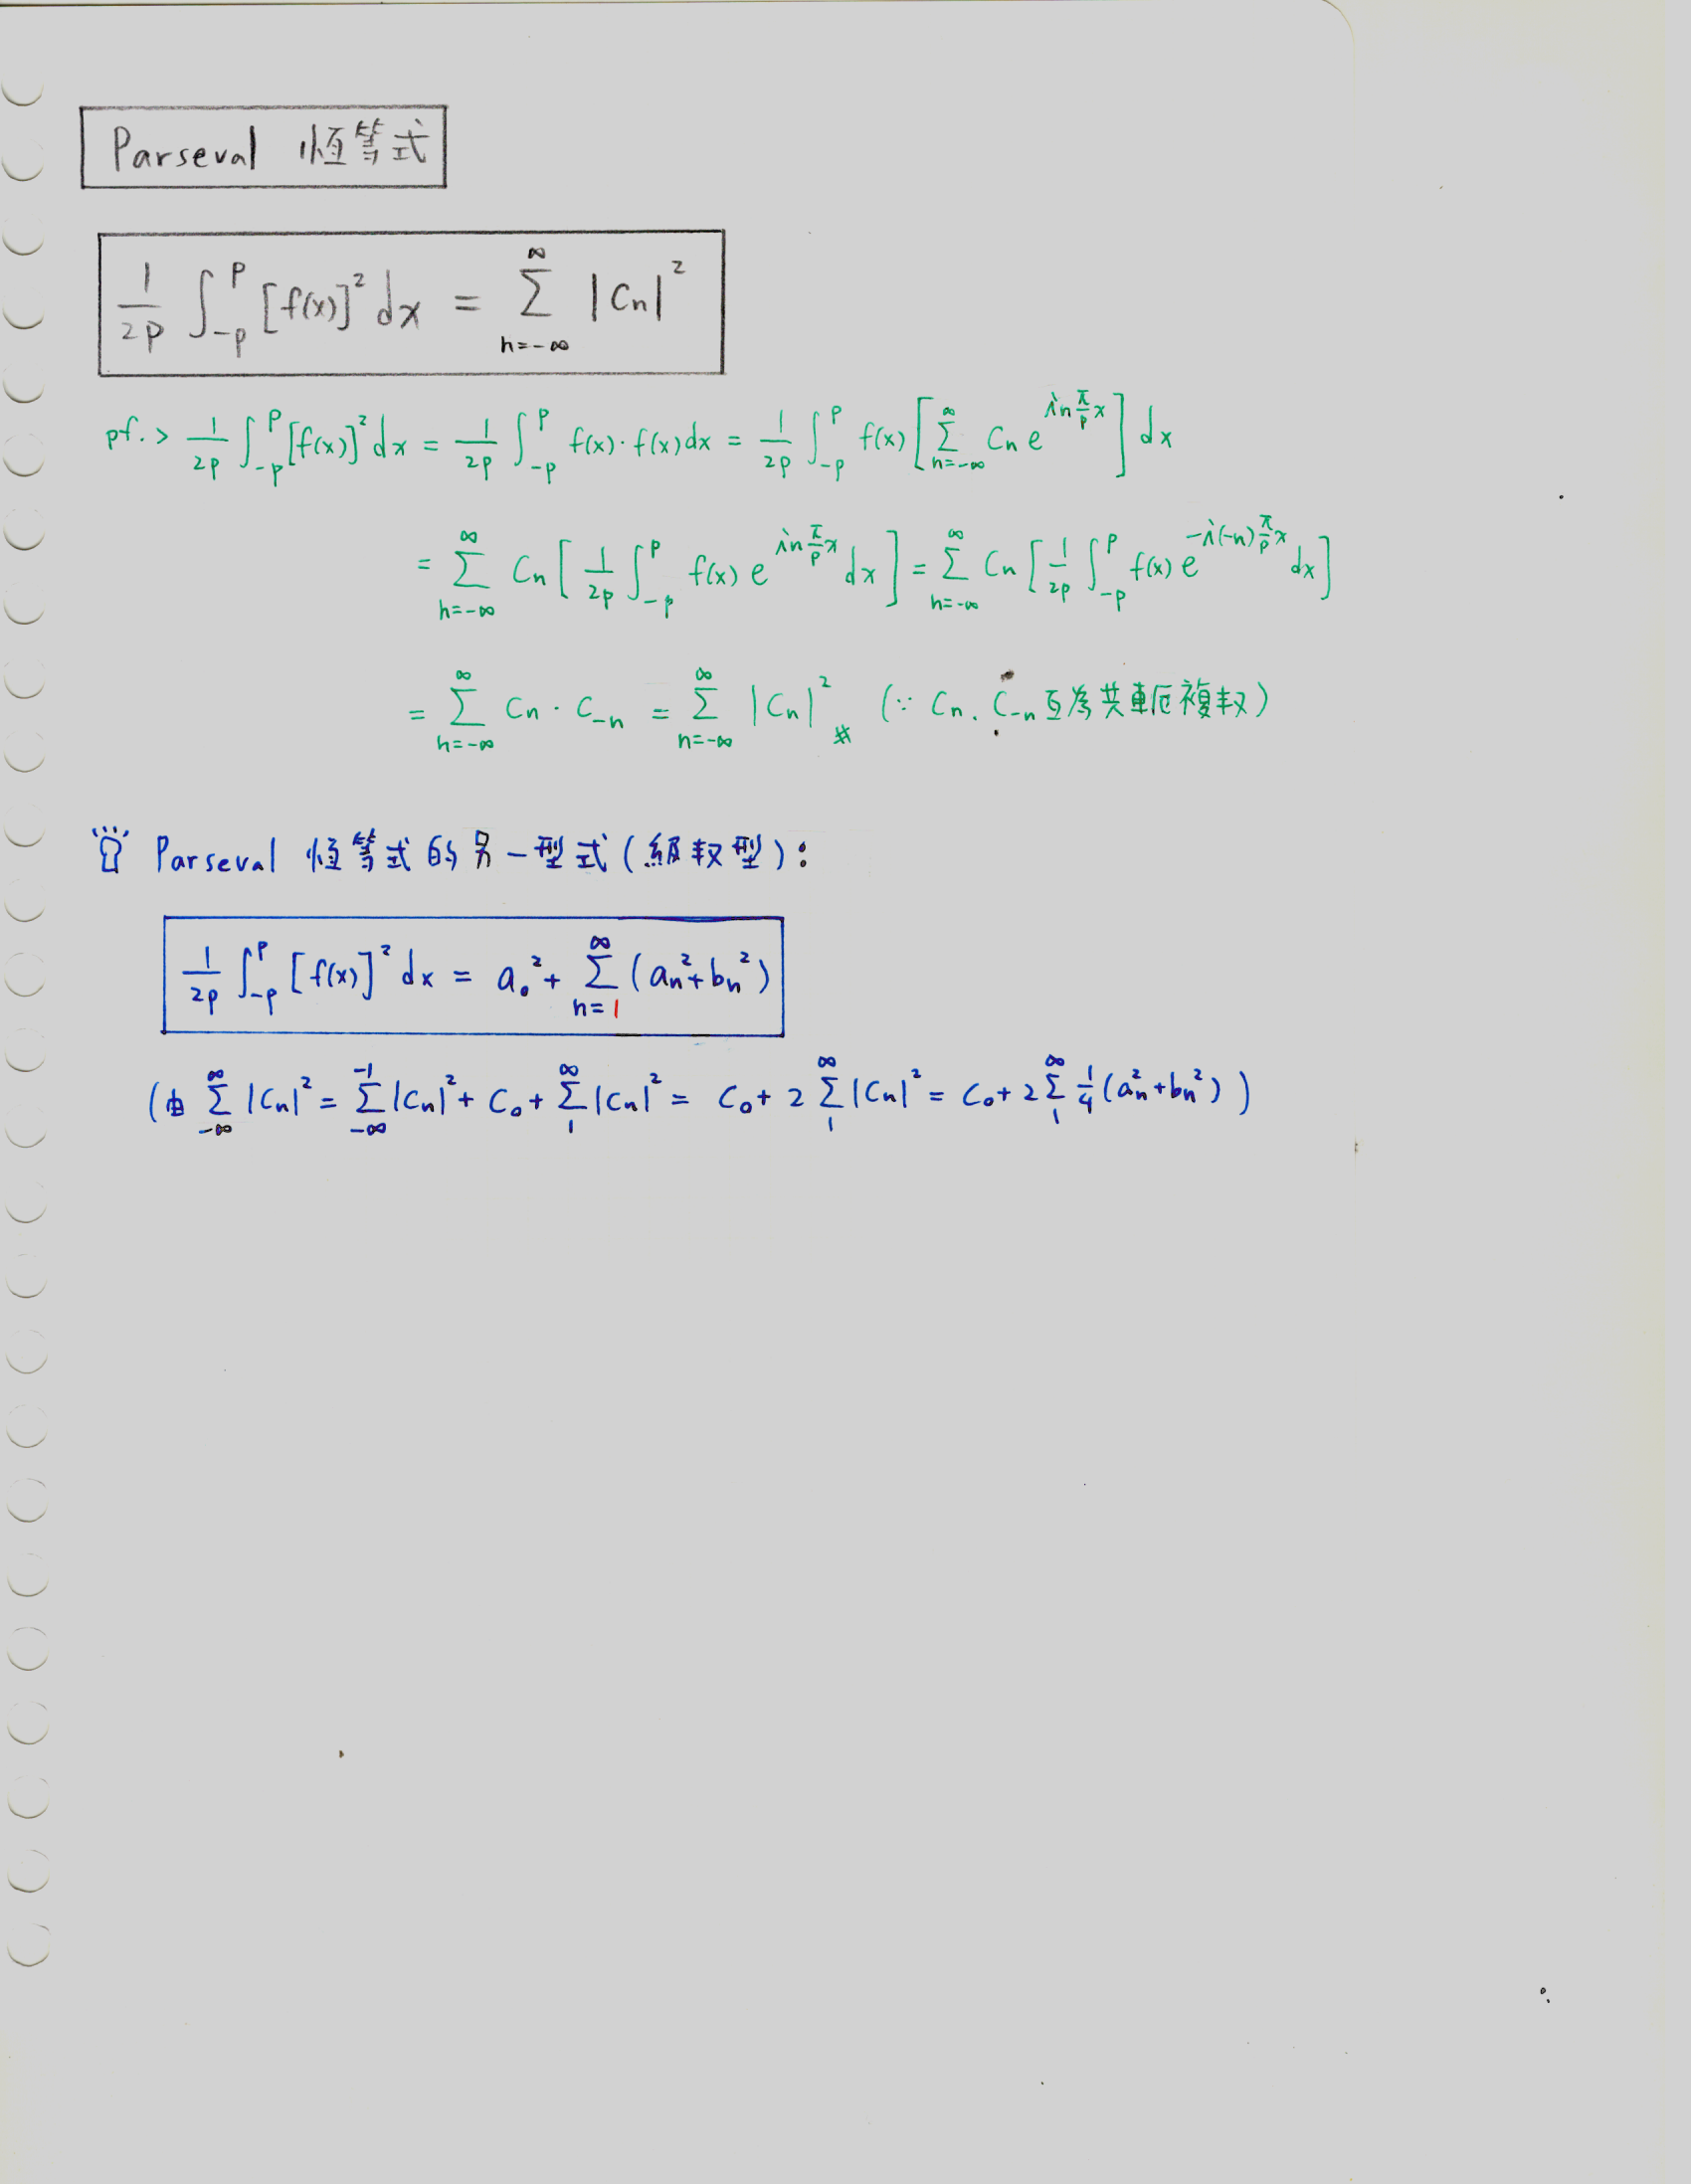 Parseval 恆等式
1/2p ∫_{-p}^{p} [f(x)]² dx = ∑_{n=-∞}^{∞} |Cn|²
pf.> 1/2p ∫_{-p}^{p} [f(x)]² dx = 1/2p ∫_{-p}^{p} f(x)·f(x) dx = 1/2p ∫_{-p}^{p} f(x) [∑_{n=-∞}^{∞} Cn e^{in π/p x}] dx
= ∑_{n=-∞}^{∞} Cn [1/2p ∫_{-p}^{p} f(x) e^{in π/p x} dx] = ∑_{n=-∞}^{∞} Cn [1/2p ∫_{-p}^{p} f(x) e^{-i(-n) π/p x} dx]
= ∑_{n=-∞}^{∞} Cn · C_{-n} = ∑_{n=-∞}^{∞} |Cn|² # (∵ Cn、C_{-n} 互為共軛複数)
Parseval 恆等式的另一型式(級数型):
1/2p ∫_{-p}^{p} [f(x)]² dx = a₀² + ∑_{n=1}^{∞} (an² + bn²)
(由 ∑_{-∞}^{∞} |Cn|² = ∑_{-∞}^{-1} |Cn|² + C₀ + ∑_{1}^{∞} |Cn|² = C₀ + 2 ∑_{1}^{∞} |Cn|² = C₀ + 2 ∑_{1}^{∞} 1/4 (an² + bn²))